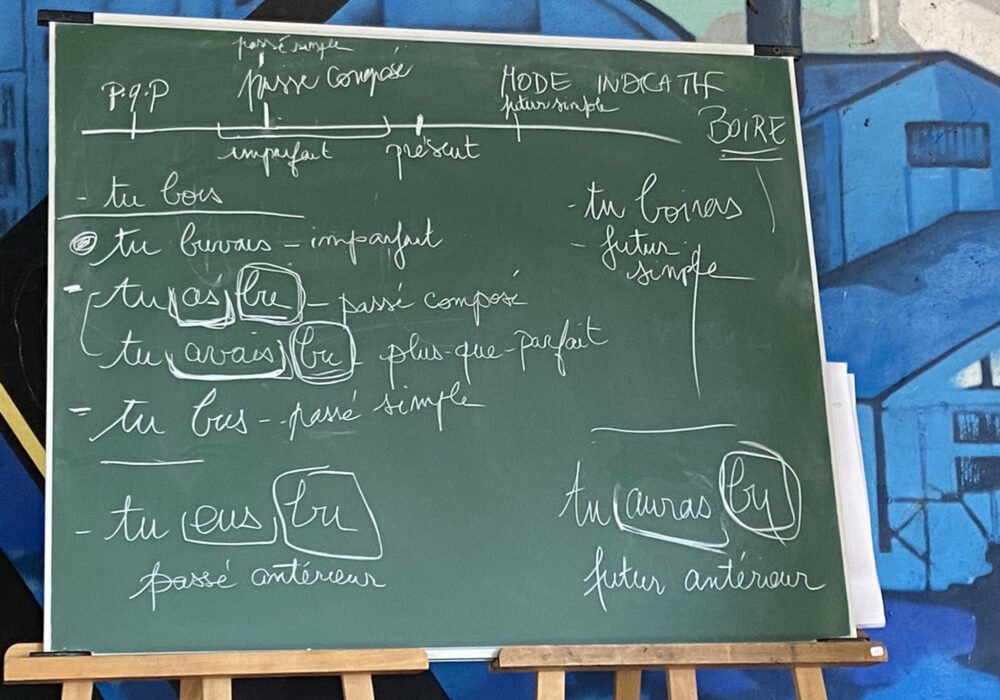 passé simple
P.q.P passé composé MODE INDICATIF
futur simple
BOIRE
imparfait présent
- tu bois
tu buvais - imparfait
- tu as bu - passé composé
tu avais bu - plus-que-parfait
- tu bus - passé simple
- tu eus bu
passé antérieur
- tu boiras
- futur
simple
tu auras bu
futur antérieur